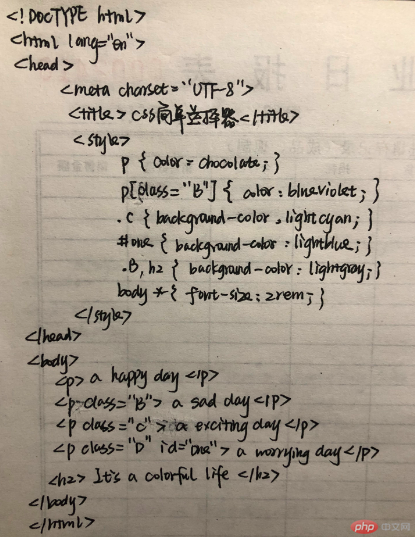 <!DOCTYPE html>
<html lang="en">
<head>
<meta charset="UTF-8">
<title>css简单选择器</title>
<style>
p { color: chocolate; }
p[class="B"] { color: blueviolet; }
.c { background-color: lightcyan; }
#one { background-color: lightblue; }
.B, h2 { background-color: lightgray; }
body * { font-size: 2rem; }
</style>
</head>
<body>
<p> a happy day </p>
<p class="B"> a sad day </p>
<p class="c"> a exciting day </p>
<p class="D" id="one"> a worrying day </p>
<h2> It's a colorful life </h2>
</body>
</html>
php 中文网